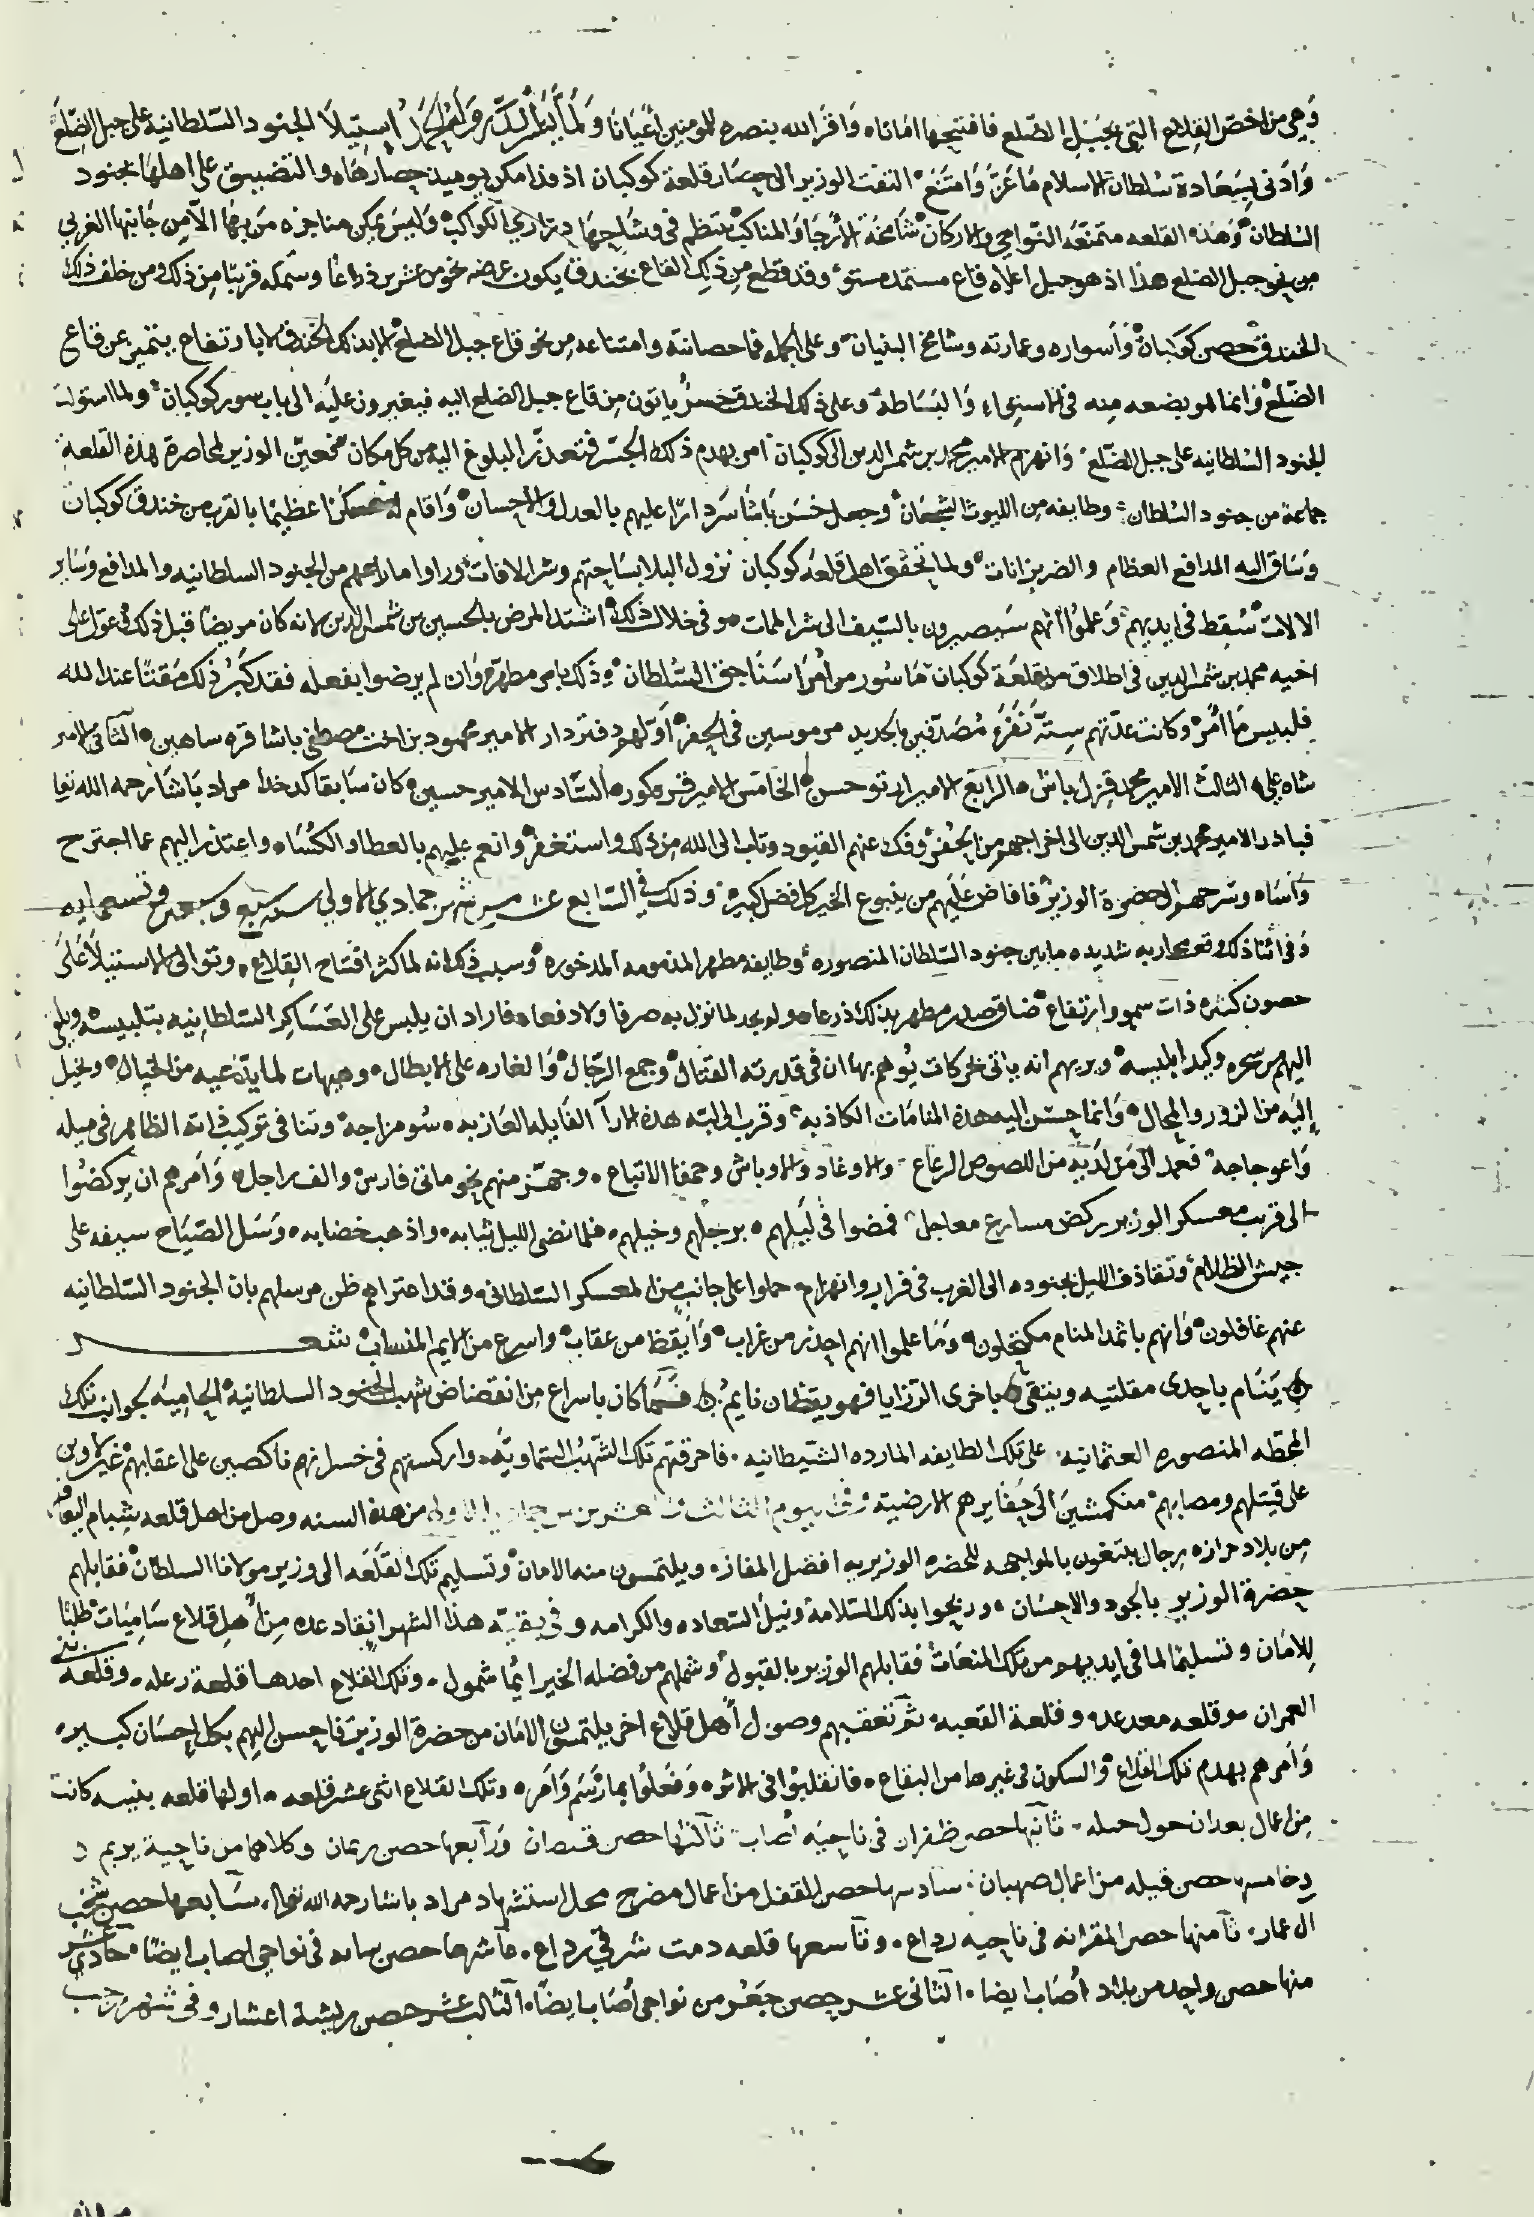 وهي من اخص القلاع التي بجبل الضلع فافتتحها امانا واقر الله بنصره للمومنين اعيانا ولما استيلا الجنود السلطانيه على جبل الضلع
وادنى بسعادة سلطان الاسلام ما عز وامتنع التفت الوزير الى حصار قلعة كوكبان اذ قد امكن يوميد حصارها والتضييق على اهلها بجنود
السلطان وهذه القلعه متمنعه النواحي والاركان شامخة الارجا والمناكب تنتظم في وشاحها دراري الكواكب وليس يمكن مناجزه من بها الا من جانبها الغربي
من نحو جبل الضلع هذا اذ هو جبل اعلاه قاع مستمد مستو وقد قطع من ذلك القاع بخندق يكون عرضه نحو من عشرين ذراعا وسمكه قريبا من ذلك ومن خلف ذلك
الخندق حصن كوكبان واسواره وعمارته وشامخ البنيان وعلى الجمله فما حصانته وامتناعه من نحو قاع جبل الضلع الا بذلك الخندق لا بارتفاع يتميز عن قاع
الضلع وانما هو بضعه منه في الاستواء والبساطة وعلى ذلك الخندق جسر ياتون من قاع جبل الضلع اليه فيعبرون عليه الى باب سور كوكبان ولما استولت
الجنود السلطانيه على جبل الضلع وانهزم الامير محمد بن شمس الدين الى كوكبان امر بهدم ذلك الجسر فتعذر البلوغ اليه من كل مكان فعين الوزير لمحاصرة هذه القلعة
جماعة من جنود السلطان وطايفه من الليوث الشجعان وجعل حسن باشا سردارا عليهم بالعدل والاحسان واقام له معسكرا عظيما بالقرب من خندق كوكبان
وساق اليه المدافع العظام والضربزانات ولما تحقق اهل قلعه كوكبان نزول البلا بساحتهم وشر الافات وراوا ما راعهم من الجنود السلطانيه والمدافع وساير
الالات سقط في ايديهم وعلموا انهم سيصيرون بالسيف الى شر الممات وفي خلال ذلك اشتد المرض بالحسين بن شمس الدين لانه كان مريضا قبل ذلك فعول على
اخيه محمد بن شمس الدين في اطلاق من بقلعة كوكبان ماسور من امرا سناجق السلطان وذلك بامر مطهر وان لم يرضوا بفعله فقد كبر ذلك مقتا عند الله
فلبيس ما امر وكانت عدتهم ستة نفر مصفدين بالحديد مرموسين في الحفر اولهم دفتردار الامير محمود بن اخت مصطفى باشا قره شاهين الثاني الامير
شاه علي الثالث الامير محمد قزل باش الرابع الامير حسن الخامس الامير قره كوز السادس الامير حسين كان سابقا كدخدا مراد باشا رحمه الله تعا
فبادر الامير محمد بن شمس الدين الى اخراجهم من الحفر وفك عنهم القيود وتاب الى الله من ذلك واستغفر وانعم عليهم بالعطا والكساء واعتذر اليهم عما اجترح
واساه وسرحهم الى حضرة الوزير فافاض عليهم من ينبوع الخير كل فضل كبير وذلك في السابع عشر من شهر جمادي الاولي سنه سبع وسبعين وتسعمايه
وفي اثنا ذلك وقع محاربه شديده ما بين جنود السلطان المنصوره وطايفه مطهر المذمومه المدحوره وسبب ذلك انه لما كثر افتتاح القلاع وتوالى الاستيلا على
حصون كثيره ذات سمو وارتفاع ضاق صدر مطهر بذلك ذرعا ولم يجد لما نزل به صرفا ولا دفعا فاراد ان يلبس على العساكر السلطانيه بتلبيسه ويلقي
اليهم من سحره وكيد ابليسه ويريهم انه ياتي بحركات يوهم بها ان في قدرته القتال وجمع الرجال والغاره على الابطال وهيهات لما يدعيه من الخيال ويخيل
اليه من الزور والمحال وانما حسن اليه هذه المنامات الكاذبه وقرب الى لبه هذه الارآ الفايله العازبه سو مزاجه وتنافي تركيب ذاته الظاهر في ميله
واعوجاجه فعمد الى من لديه من اللصوص الرعاع والاوغاد والاوباش وحمقا الاتباع وجهز منهم نحو ماتي فارس والف راجل وامرهم ان يركضوا
الى قريب معسكر الوزير ركض مسارع معاجل فمضوا في ليلهم برجلهم وخيلهم فلما نضى الليل ثيابه واذهب خضابه وسل الصباح سيفه على
جيش الظلام وتقاذف الليل بجنوده الى الغرب في فرار وانهزام حملوا على جانب من المعسكر السلطاني وقد اعتراهم ظن مرسلهم بان الجنود السلطانيه
عنهم غافلون وانهم باثمد المنام مكتحلون وما علموا انهم احذر من غراب وايقظ من عقاب واسرع من الايم المنساب شعر
ينام باحدى مقلتيه ويتقي باخرى الرزايا فهو يقظان نايم فما كان باسرع من انقضاض شهب الجنود السلطانية الحاميه بجوانب تلك
المحطه المنصوره العثمانيه على تلك الطايفه المارده الشيطانيه فاحرقتهم تلك الشهب السماويه واركستهم في خسرانهم ناكصين على اعقابهم غير لاوين
على قتيلهم ومصابهم منكمشين الى حفايرهم الارضية وفي يوم الثالث والعشرين من جمادي الاولى من هذه السنه وصل من اهل قلعه شبام
من بلاد حرازه رجال يبتغون بالمواجهه للحضره الوزيريه افضل المفازه ويلتمسون منه الامان وتسليم تلك القلعه الى وزير مولانا السلطان فقابلهم
حضرة الوزير بالجود والاحسان وربحوا بذلك السلامة ونيل السعاده والكرامه وفي بقية هذا الشهر انقاد عده من اهل قلاع ساميات طلبا
للامان وتسليما لما في ايديهم من تلك المنعات فقابلهم الوزير بالقبول وشملهم من فضله الخير ايما شمول وتلك القلاع احدها قلعة رعله وقلعة
العمران وقلعه معدعده وقلعة القعبه ثم تعقبهم وصول اهل قلاع اخر يلتمسون الامان من حضرة الوزير فاحسن اليهم بكل احسان كبير
وامرهم بهدم تلك القلاع والسكون في غيرها من البقاع فانقلبوا في الاثر وفعلوا بما رسم وامر وتلك القلاع اثنى عشر قلعه اولها قلعه كانت
من اعمال بعدان ثانيها حصن ظفران في ناحيه اصاب ثالثها حصن ورابعها حصن ريمان وكلاهما من ناحية يريم
وخامسها حصن قبله من اعمال صهبان سادسها حصن المقفل من اعمال مضرح محل استشهاد مراد باشا رحمه الله تعالى سابعها حصن شخب
ال عمار ثامنها حصن المقرانه في ناحيه رداع وتاسعها قلعه دمت شرقي رداع عاشرها حصن في نواحي اصاب ايضا حادي عشر
منها حصن واحد من بلاد اصاب ايضا الثاني عشر حصن جعر من نواحي اصاب ايضا الثالث عشر حصن ريشة اعشار وفي شهر رجب